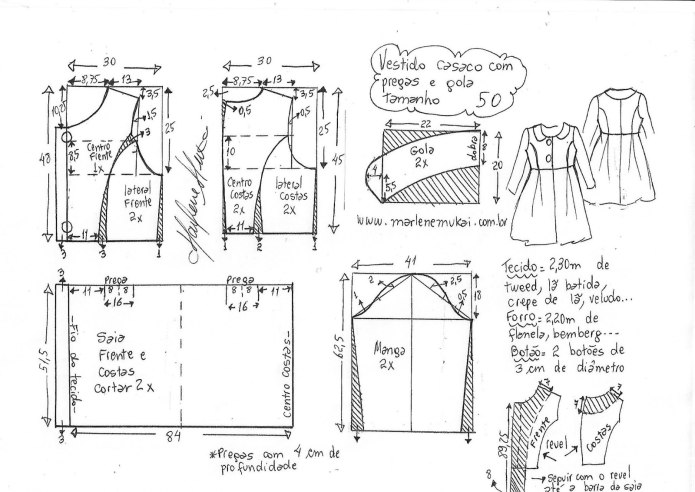 30
8,75 13
3,5
10,25
1,5
3
48
8,5
25
Centro
Frente
1x
lateral
Frente
2x
11
3 3 1
30
8,75 13
2,5
3,5
0,5
0,5
10
25
45
Centro
Costas
2x
lateral
Costas
2x
11
1 2 1
Marlene Mukai
Vestido casaco com
pregas e gola
Tamanho 50
22
Gola
2x
dobra
8
20
4
5,5
www.marlenemukai.com.br
3
Prega Prega
11 8 8 8 8 11
16 16
51,5
Fio do tecido
Saia
Frente e
Costas
Cortar 2x
Centro Costas
3
84
*Pregas com 4 cm de
profundidade
41
2 2,5
1 0,5
18
62,5
Manga
2x
Tecido= 2,30m de
tweed, lã batida,
crepe de lã, veludo...
Forro= 2,20m de
flanela, bemberg----
Botão= 2 botões de
3 cm de diâmetro
7 7
Frente
revel
Costas
89,25
8
Seguir com o revel
até a barra da saia